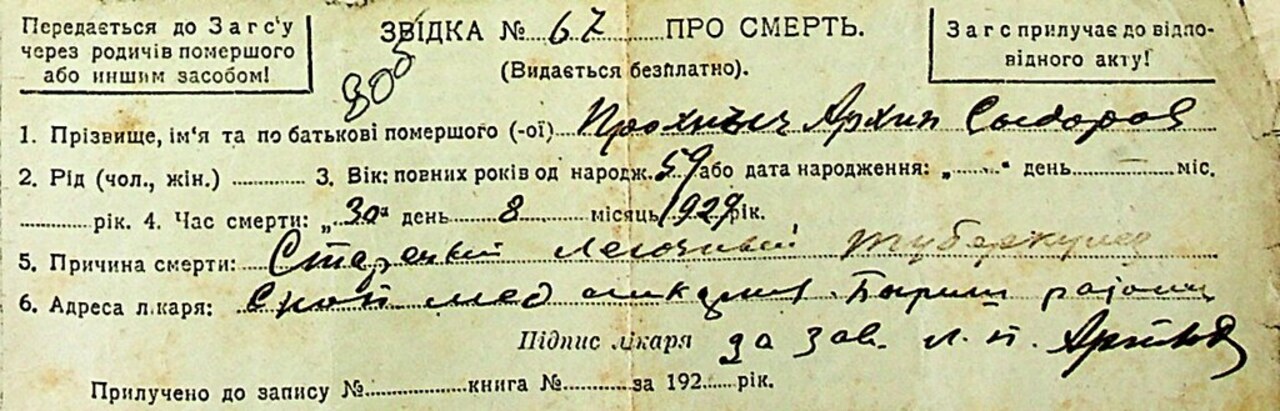 Передається до Загс'у
через родичів помершого
або иншим засобом!
ЗВІДКА № 67 ПРО СМЕРТЬ.
(Видається безплатно).
Загс прилучає до відпо-
відного акту!
305
1. Прізвище, ім'я та по батькові помершого (-ої) Архип Сидоров
2. Рід (чол., жін.) 3. Вік: повних років од народж. 59 або дата народження: „ " день міс.
рік. 4. Час смерти: „30" день 8 місяць 1929 рік.
5. Причина смерти: легочный туберкулез
6. Адреса лікаря: мед района
Підпис лікаря за зав.
Прилучено до запису № книга № за 192 рік.